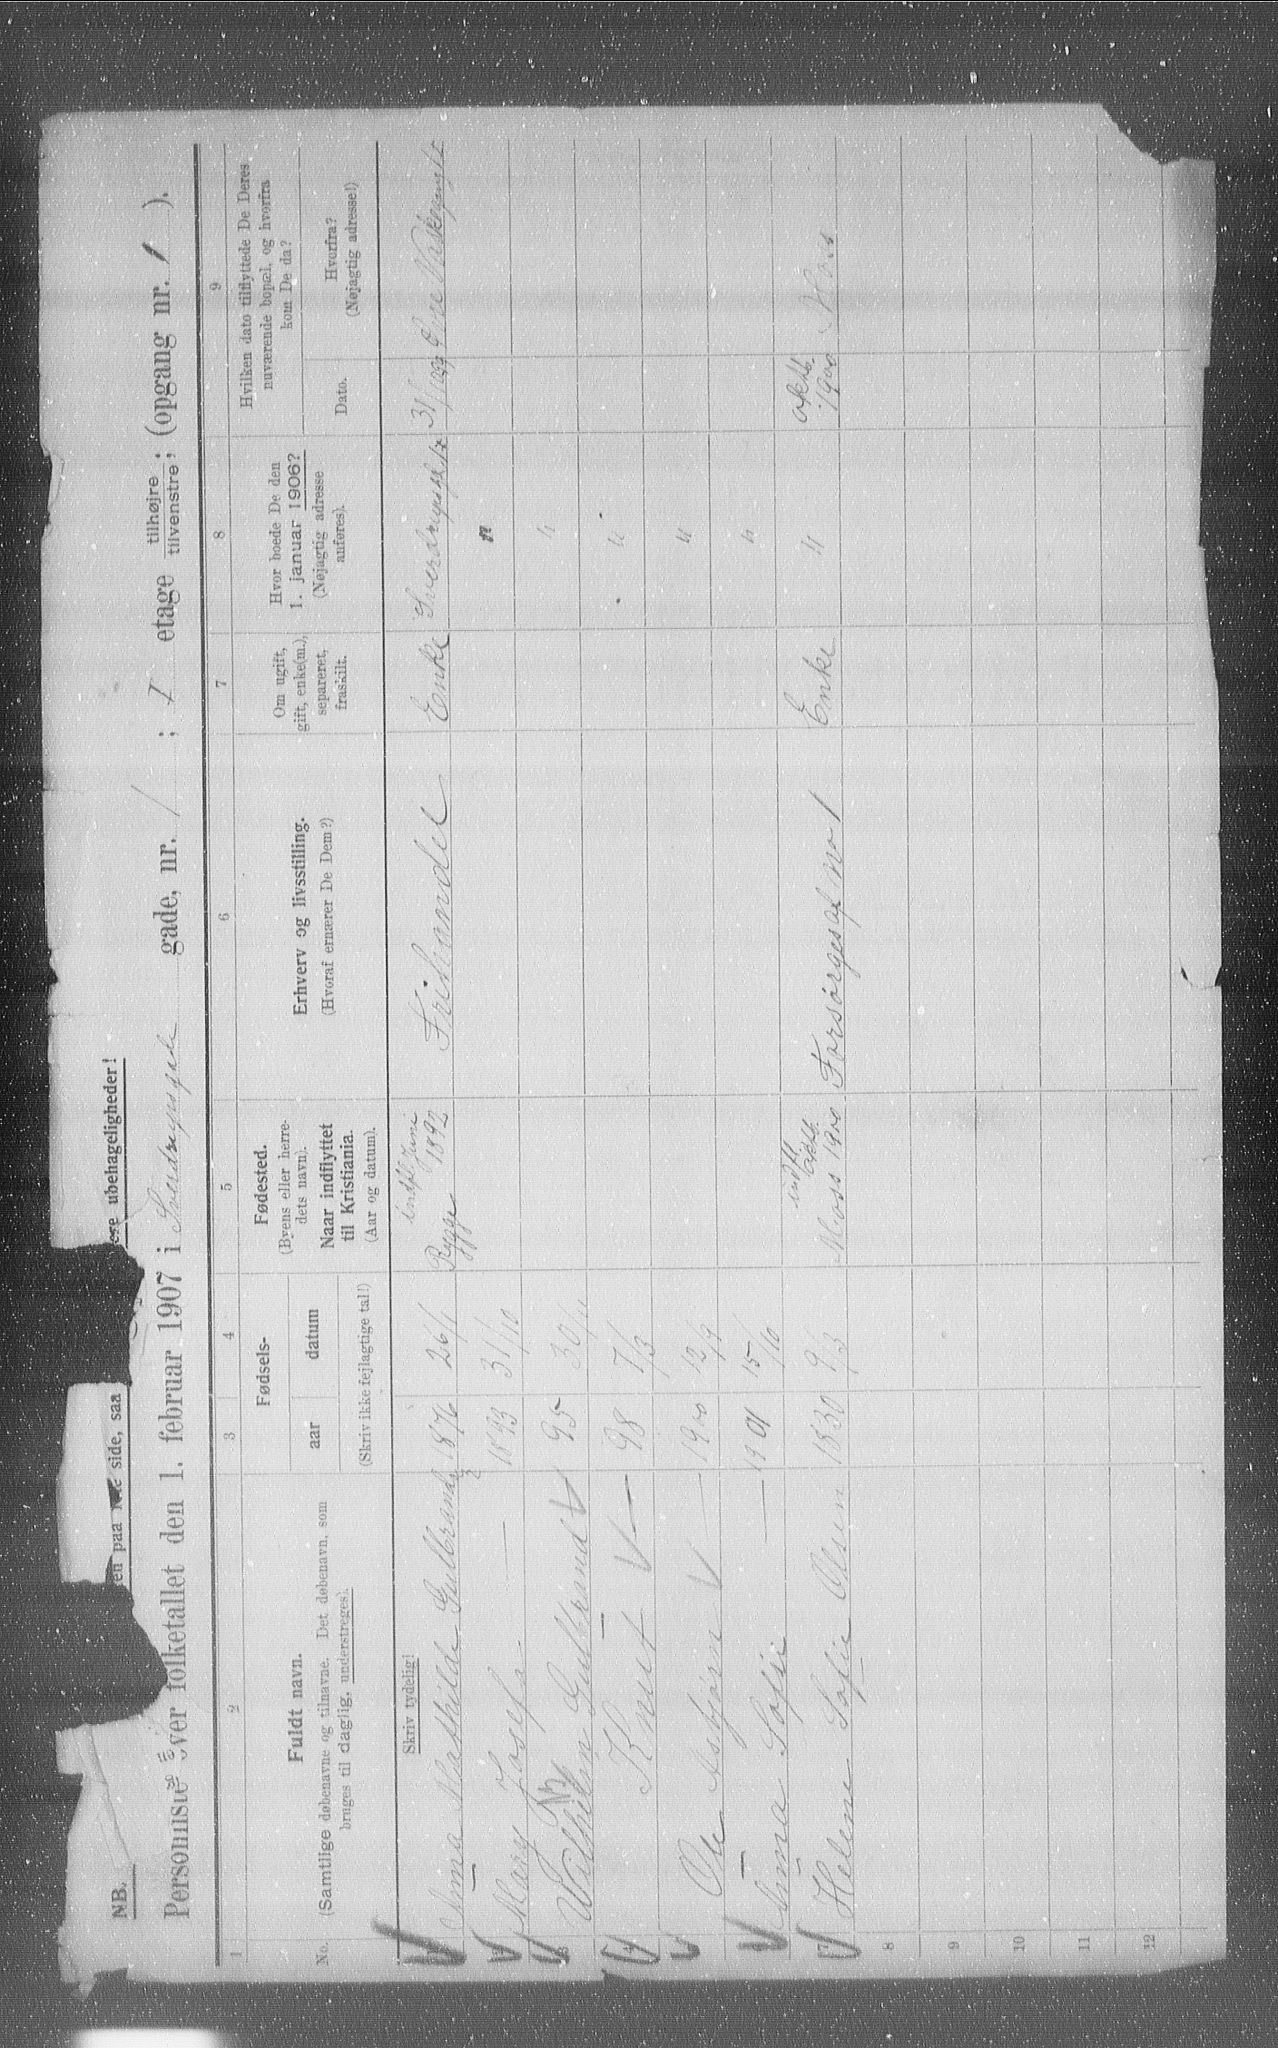 NB.
en paa
side, saa
ere ubehageligheder!
Personliste over folketallet den 1. februar 1907 i Sverdrupsgade gade, nr. 1; I etage tilhøjre/tilvenstre; (opgang nr. 1).
1 2 3 4 5 6 7 8 9
No.
Fuldt navn.
(Samtlige døbenavne og tilnavne. Det døbenavn, som
bruges til daglig, understreges).
Fødsels-
aar
datum
(Skriv ikke fejlagtige tal!)
Fødested.
(Byens eller herre-
dets navn).
Naar indflyttet
til Kristiania.
(Aar og datum).
Erhverv og livsstilling.
(Hvoraf ernærer De Dem?)
Om ugift,
gift, enke(m.),
separeret,
fraskilt.
Hvor boede De den
1. januar 1906?
(Nøjagtig adresse
anføres).
Hvilken dato tilflyttede De Deres
nuværende bopæl, og hvorfra
kom De da?
Dato.
Hvorfra?
(Nøjagtig adresse!)
Skriv tydelig!
Anna Mathilde Gulbrands 1876 26/1 Rygge indfl. Juni 1892 Frihandel Enke
Mary Josefa — 1893 31/10 "
3 Wilhelm Gulbrand 95 30/11 "
4 Knut — 98 7/3 "
Ole Asbjørn — 1900 12/9 "
Anna Sofie — 1901 15/10 "
7 Helene Sofie Olsen 1830 9/3 Moss indfl. oktb. 1900 Forsørges af No 1 Enke " oktb. 1900 Moss
8
9
10
11
12